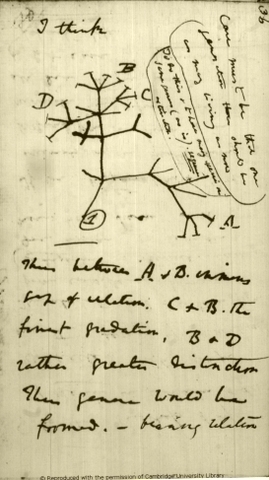 36
I think
Case must be that one
generation then should be
as many living as now
To do this & to have many species in
same genus (as is). requires
extinction.
B
D
C
A
1
Thus between A & B. immense
gap of relation. C & B. the
finest gradation, B & D
rather greater distinction
Thus genera would be
formed. — bearing relation
© Reproduced with the permission of Cambridge University Library